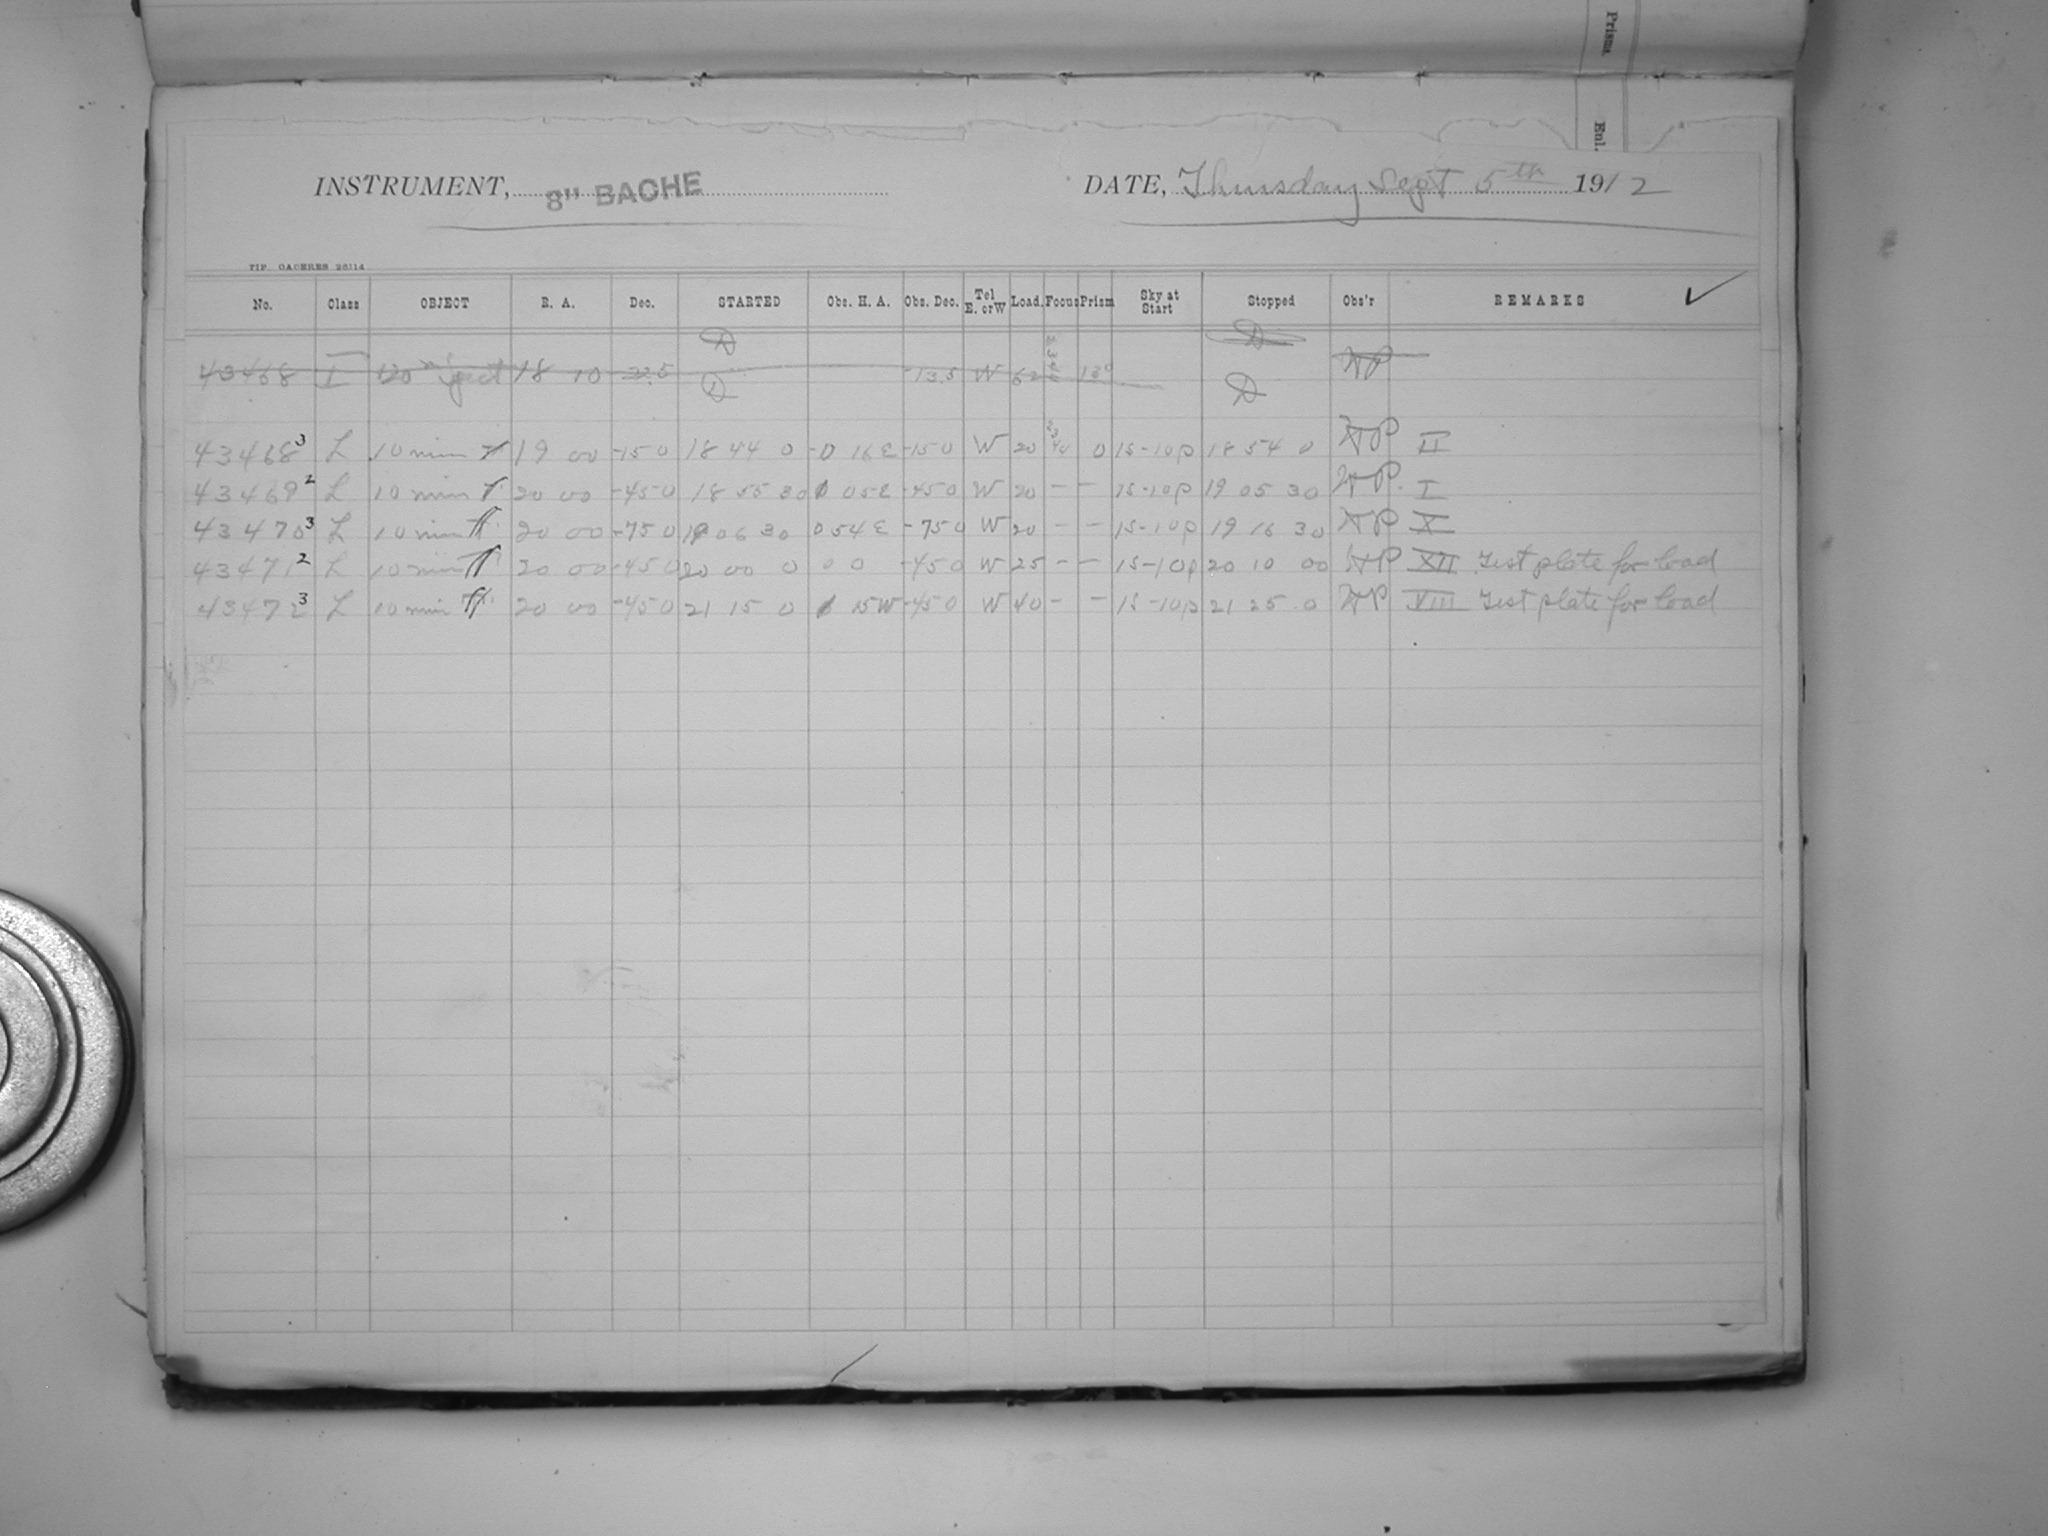 Prism.
Enl.
INSTRUMENT, 8" BACHE DATE, Thursday Sept 5th 1912
TIP. CACERES 26114
No. Class OBJECT R. A. Dec. STARTED Obs. H. A. Obs. Dec. Tel E. or W Load. Focus Prism Sky at Start Stopped Obs'r REMARKS ✓
43468 I 120 18 10 -22.5 -13.5 W 62 13°
43468 3 L 10 min 19 00 -15 0 18 44 0 -0 16 E -15 0 W 20 0 1s-10p 18 54 0 II
43469 2 L 10 min 20 00 -45 0 18 55 30 05 E -45 0 W 20 - - 1s-10p 19 05 30 I
43470 3 L 10 min 20 00 -75 0 19 06 30 0 54 E -75 0 W 20 - - 1s-10p 19 16 30 X
43471 2 L 10 min 20 00 -45 0 20 00 0 0 0 -45 0 W 25 - - 1s-10p 20 10 00 XII Test plate for load
43472 3 L 10 min 20 00 -45 0 21 15 0 15 W -45 0 W 40 - - 1s-10p 21 25 0 VIII Test plate for load